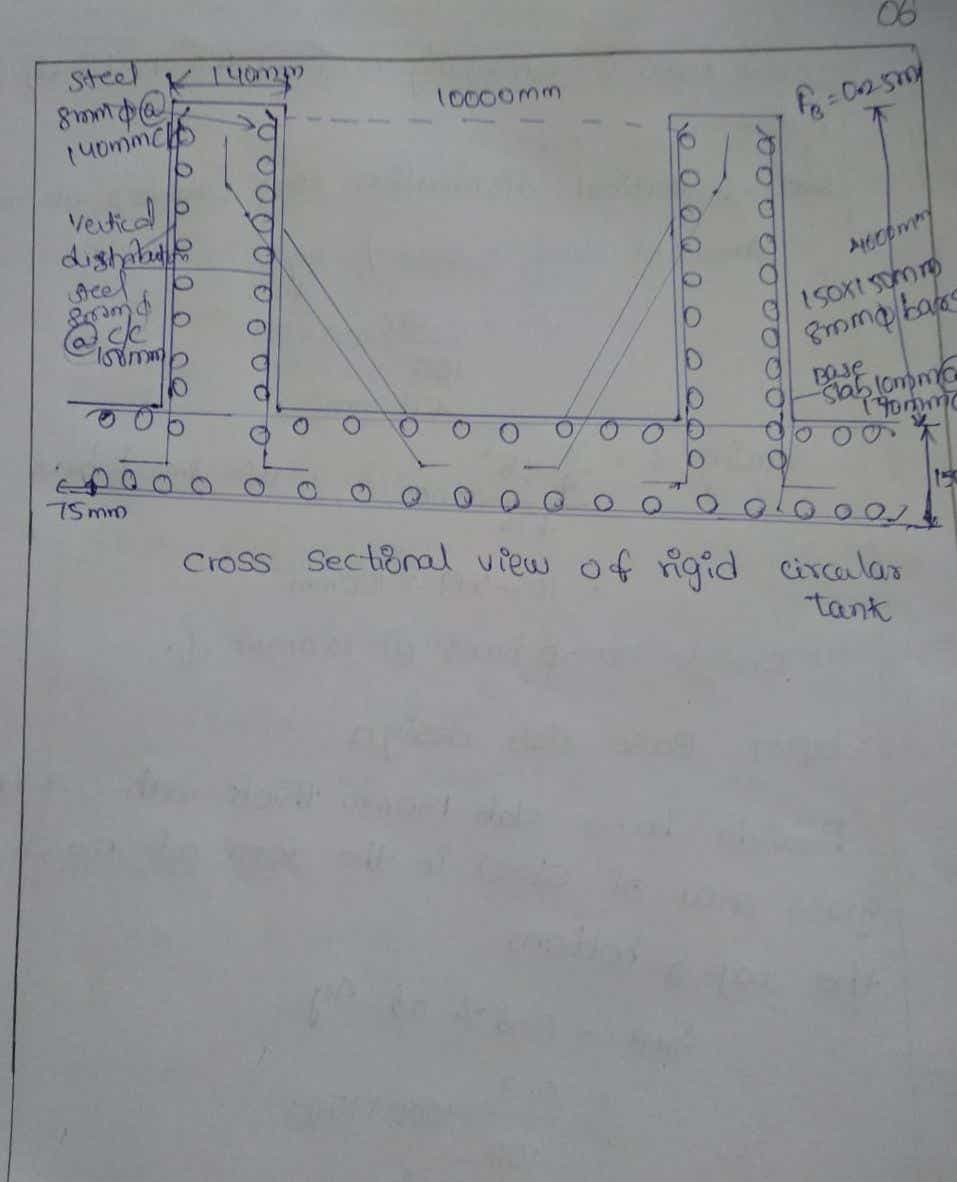 06
Steel
140mm
8mm ϕ @
140mm c/c
10000mm
FB = 0.25m
Vertical
distribution
steel
8mm ϕ
@ c/c
4000mm
150x150mm
8mm ϕ bars
Base
slab 10mm @
75mm
cross sectional view of rigid circular
tank